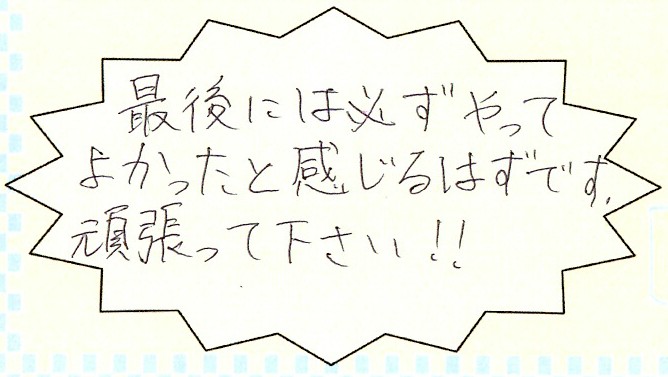 最後には必ずやって
よかったと感じるはずです.
頑張って下さい!!